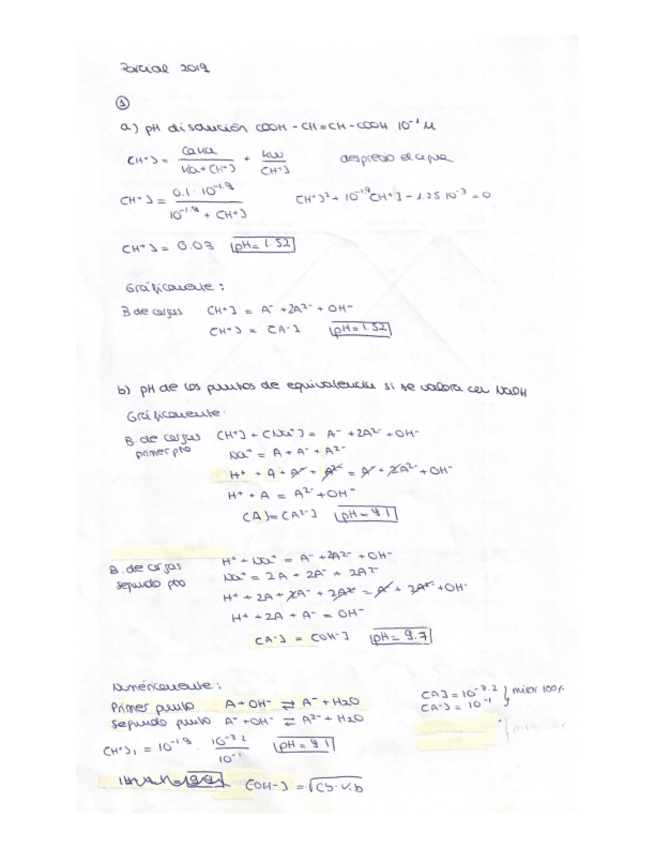 Parcial 2019
①
a) pH disolución COOH - CH=CH - COOH 10⁻¹ M
[H⁺] = CaKa / Ka+[H⁺] + Kw / [H⁺] desprecio el agua
[H⁺] = 0.1 · 10⁻¹·⁹ / 10⁻¹·⁹ + [H⁺] [H⁺]² + 10⁻¹·⁹[H⁺] - 1.25 10⁻³ = 0
[H⁺] = 0.03 pH = 1.52
Gráficamente:
B de cargas [H⁺] = A⁻ + 2A²⁻ + OH⁻
[H⁺] = [A⁻] pH = 1.52
b) pH de los puntos de equivalencia si se valora con NaOH
Gráficamente.
B. de cargas [H⁺] + [Na⁺] = A⁻ + 2A²⁻ + OH⁻
primer pto Na⁺ = A + A⁻ + A²⁻
H⁺ + A + A⁻ + A²⁻ = A⁻ + 2A²⁻ + OH⁻
H⁺ + A = A²⁻ + OH⁻
[A] = [A²⁻] pH = 4.1
B. de cargas H⁺ + Na⁺ = A⁻ + 2A²⁻ + OH⁻
segundo pto Na⁺ = 2A + 2A⁻ + 2A²⁻
H⁺ + 2A + 2A⁻ + 2A²⁻ = A⁻ + 2A²⁻ + OH⁻
H⁺ + 2A + A⁻ = OH⁻
[A⁻] = [OH⁻] pH = 9.7
Numéricamente:
Primer punto A + OH⁻ ⇄ A⁻ + H₂O
Segundo punto A⁻ + OH⁻ ⇄ A²⁻ + H₂O
[A] = 10⁻³·² } mirar
[A⁻] = 10⁻¹
[H⁺]₁ = 10⁻¹·⁹ · 10⁻³·² / 10⁻¹ pH = 4.1
[OH⁻] = √Cb·Kb